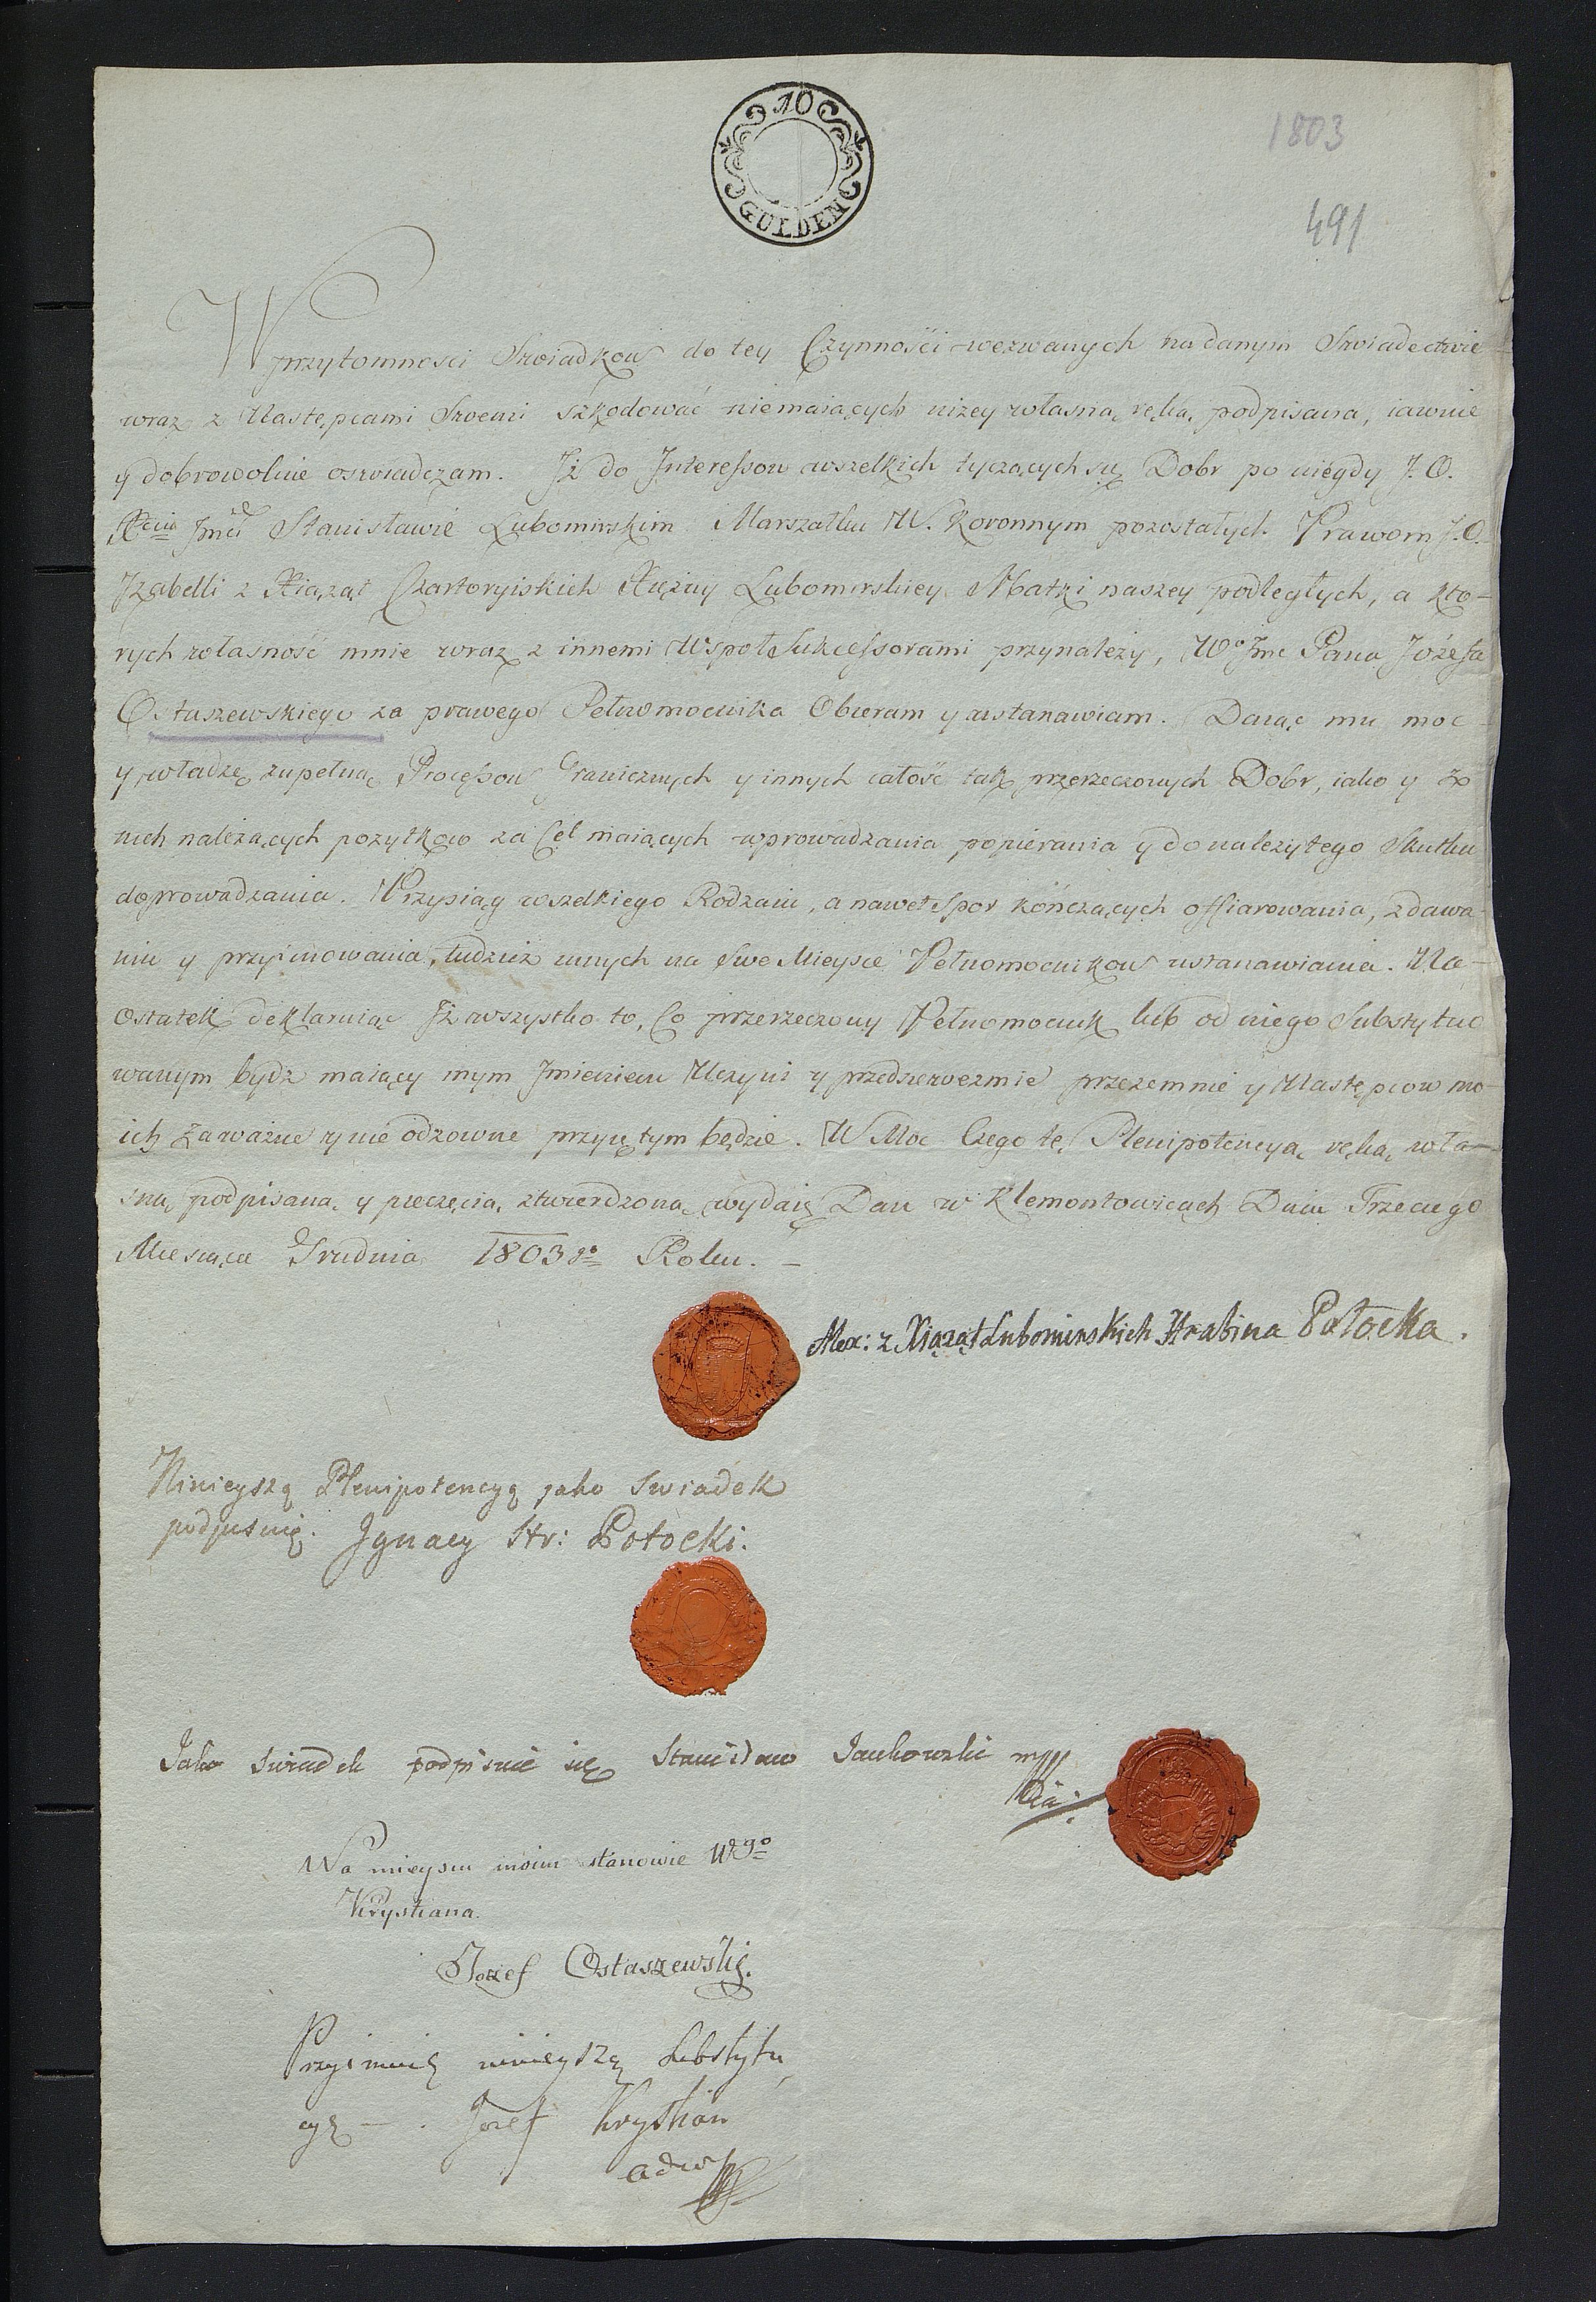 10
GULDEN
1803
491
W przytomnosci Swiadkow do tey Czynności wezwanych na danym Swiadectwie
wraz z Następcami Swemi szkodować niemaiących niżey własną ręką podpisana, iawnie
y dobrowolnie oswiadczam. Iż do Interessow wszelkich tyczących się Dobr po niegdy J. O.
Xciu Jmci Stanisławie Lubomirskim Marszałku W. Koronnym pozostałych Prawom J. O.
Jzabelli z Xiążąt Czartoryiskich Xiężny Lubomirskiey Matki naszey podległych, a kto-
rych własność mnie wraz z innemi WspołSukcessorami przynależy, Wo Jmc Pana Józefa
Ostaszewskiego za prawego Pełnomocnika Obieram y ustanawiam. Daiąc mu moc
y władzę zupełną Processow Granicznych y innych całość tak przerzeczonych Dobr, iako y z
nich należących pożytkow za Cel maiących wprowadzania popierania y do należytego Skutku
doprowadzania. Przysiąg wszelkiego Rodzaiu, a nawet Spor kończących offiarowania, zdawa-
niu y przyimowania, tudzież innych na Swe Mieysce Pełnomocnikow ustanawiania. Na-
Ostatek deklaruiąc Iż wszystko to, Co przerzeczony Pełnomocnik lub od niego Substytuo
wanym bydz maiący mym Jmieniem Uczyni y przedsięwezmie przezemnie y Następcow mo-
ich za ważne y nie odzowne przyiętym będzie. W Moc Czego tę Plenipotencyą ręką wła-
sną podpisaną y pieczęcią ztwierdzoną wydaię Dan w Klementowicach Dnia Trzeciego
Miesiąca Grudnia 1803go Roku. -
Alex: z Xiążąt Lubomirskich Hrabina Potocka.
Ninieyszą Plenipotencyą jako Swiadek
podpisuię. Jgnacy Hr: Potocki.
Jako Swiadek podpisuie się Stanisław Jankowski mpp
Na mieyscu moim stanowie Wgo
Krystiana.
Jozef Ostaszewski.
Przyimuię ninieyszą Substytu
cyę - . Jozef Krystian
adw